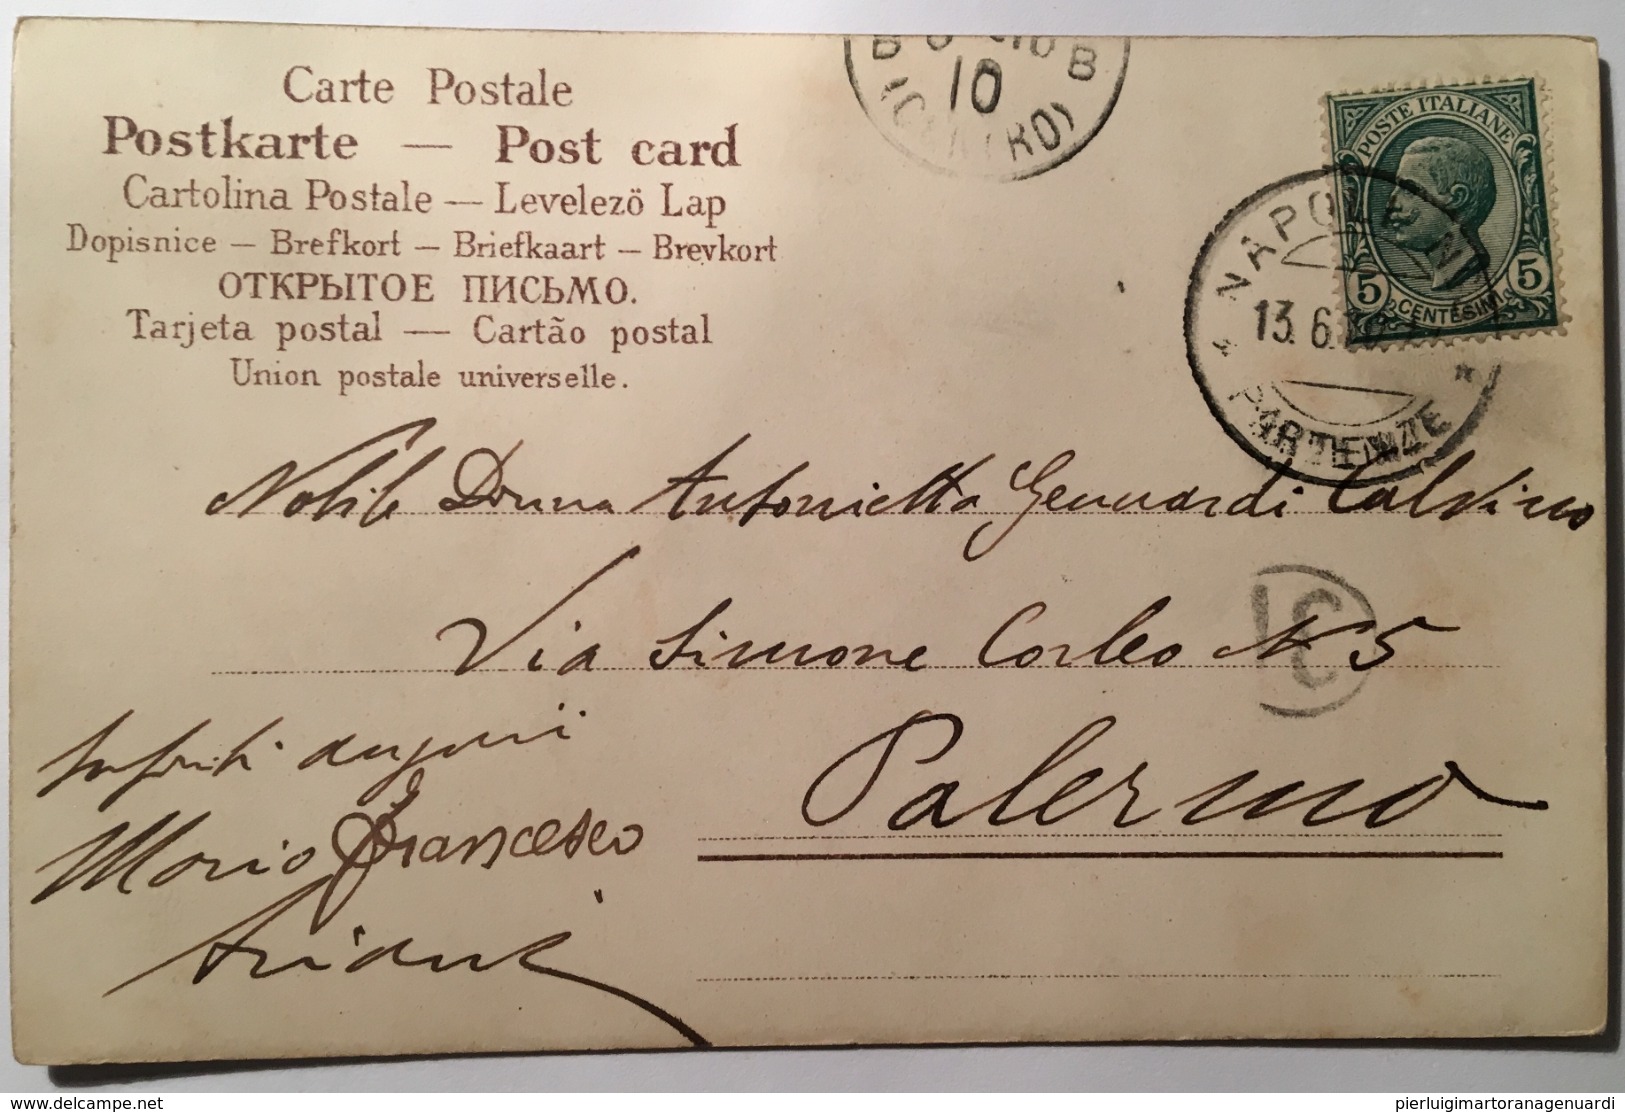 Carte Postale
Postkarte — Post card
Cartolina Postale — Levelező Lap
Dopisnice — Brefkort — Briefkaart — Brevkort
ОТКРЫТОЕ ПИСЬМО.
Tarjeta postal — Cartão postal
Union postale universelle.
10
POSTE ITALIANE
5 CENTESIMI 5
NAPOLI
13. 6.
PARTENZE
Nobile Donna Antonietta Genuardi Calvino
Via Simone Corleo N 5
Palermo
auguri
Mario Francesco
www.delcampe.net
pierluigimartoranagenuardi